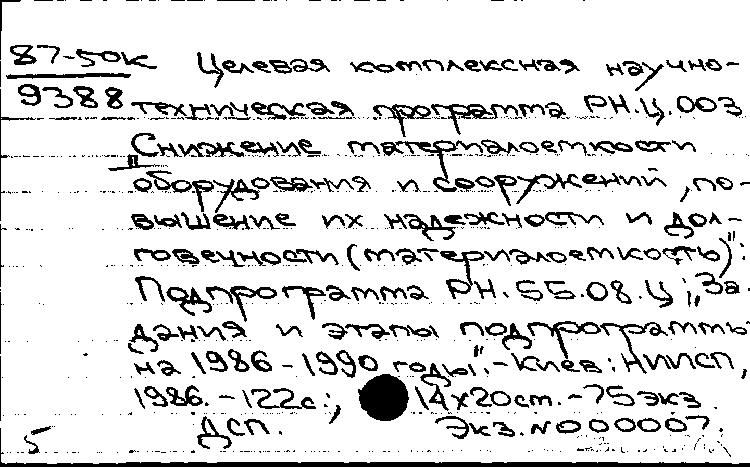 87-50к Целевая комплексная научно-
9388 техническая программа РН.Ц.003
„Снижение материалоемкости
оборудования и сооружений, по-
вышение их надежности и дол-
говечности (материалоемкость)":
Подпрограмма РН.55.08.Ц; „За-
дания и этапы подпрограммы
на 1986-1990 годы". - Киев: НИИСП,
1986. - 122с.; 14х20см. - 75экз.
5 ДСП. Экз. №000007.